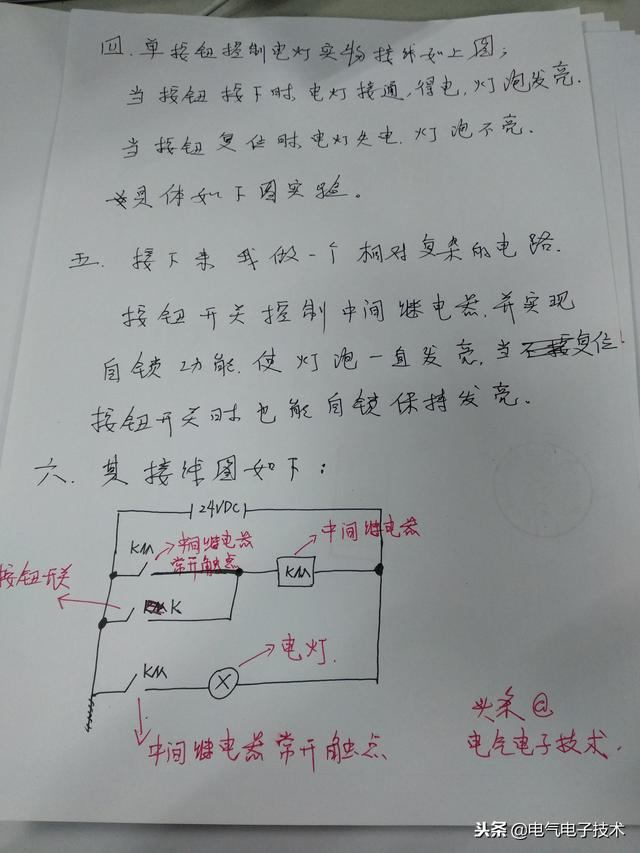 四. 单按钮控制电灯实物接线如上图;
当按钮按下时, 电灯接通, 得电, 灯泡发亮.
当按钮复位时, 电灯失电. 灯泡不亮.
具体如下图实验。
五. 接下来我做一个相对复杂的电路.
按钮开关控制中间继电器, 并实现
自锁功能. 使灯泡一直发亮, 当复位
按钮开关时也能自锁保持发亮.
六. 其接线图如下:
24VDC
KM
中间继电器
常开触点
中间继电器
KM
按钮开关
K
KM
电灯.
中间继电器常开触点
头条@
电气电子技术.
头条@电气电子技术